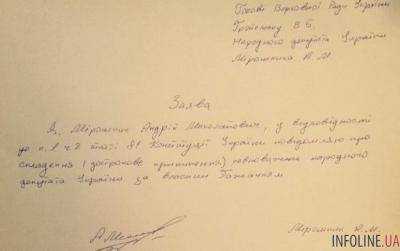 Голові Верховної Ради України
Гройсману В.Б.
Народного депутата України
Мірошника І.М.
Заява
Я, Мірошник Миколайович, у відповідності
до п. 1 ч. 2 статті 81 Конституції України повідомляю про
складення (дострокове припинення) повноважень народного
депутата України за власним бажанням
Мірошник І.М.
INFOLINE.UA